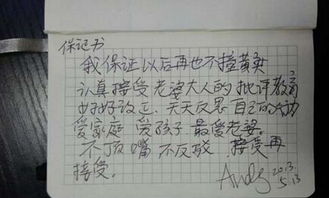 保证书
我保证以后再也不撞黄灯
认真接受老婆大人的批评教育
好好改正、天天反思自己的
爱家庭 爱孩子 最爱老婆.
不顶嘴 不反驳 接受再
接受。
Andy 2013.
5.13